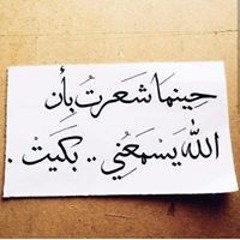 حِينمَا شَعَرتُ بِأن
اللهَ يَسْمَعُنِي .. بكَيتْ .